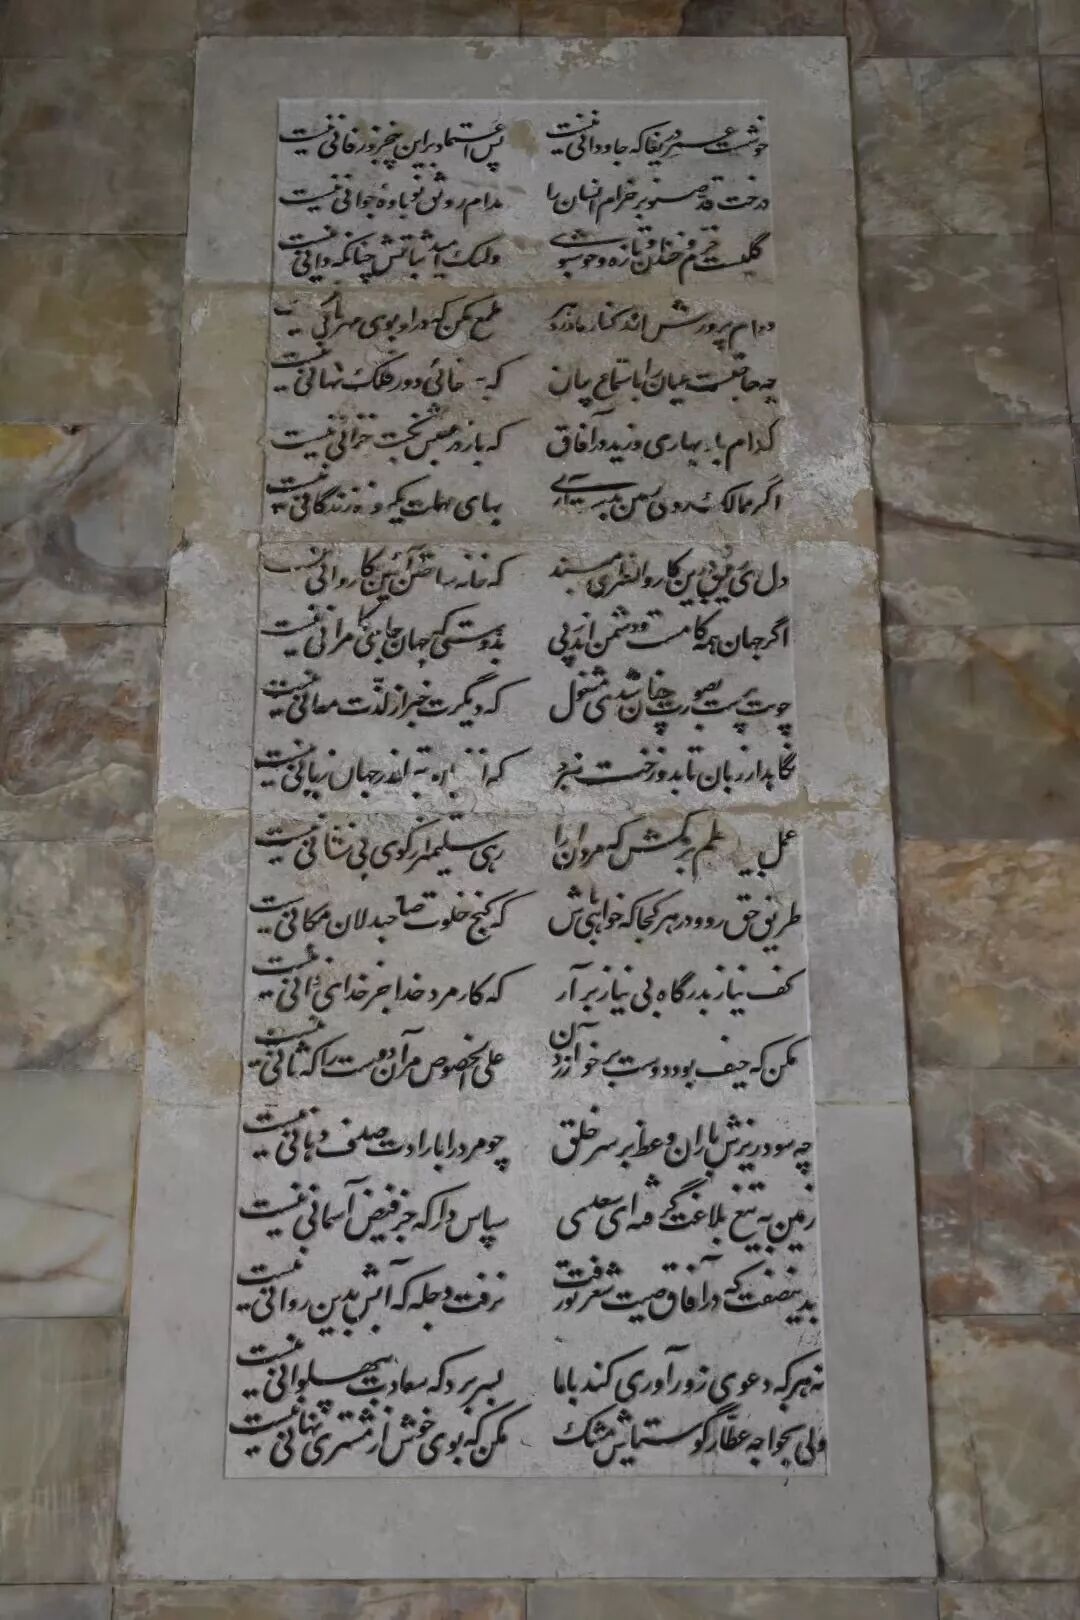 خوشست عمر دریغا که جاودانی نیست پس اعتماد برین پنجروز فانی نیست
درخت قد صنوبر خرام انسان را مدام رونق نوباوهٔ جوانی نیست
گلیست خرم و خندان و تازه و خوشبوی ولیک امید ثباتش چنانکه دانی نیست
دوام پرورش اندر کنار مادر دهر طمع مکن که در او بوی مهربانی نیست
چه حاجتست عیان را باستماع بیان که بی‌ فائی دور فلک نهانی نیست
کدام باد بهاری وزید در آفاق که باز در عقبش نکبت خزانی نیست
اگر ممالک روی زمین بدست آری بهای مهلت یکروزه زندگانی نیست
دل ای رفیق درین کاروانسرای مبند که خانه ساختن آئین کاروانی نیست
اگر جهان همه کامست و دشمن اندر پی بدوستی که جهان جای کامرانی نیست
چو بت پرست بصورت چنان شدی مشغول که دیگرت خبر از لذت معانی نیست
نگاهدار زبان تا بدوزخت نبرد که از زبان بتر اندر جهان زیانی نیست
عمل بیار علم بر مکش که مردان را رهی سلیم‌تر از کوی بی نشانی نیست
طریق حق رو و در هر کجا که خواهی باش که کنج خلوت صاحبدلان مکانی نیست
کف نیاز بدرگاه بی نیاز برآر که کار مرد خدا جز خدای خوانی نیست
مکن که حیف بود دوست بر خود آزردن علی الخصوص مر آن دوست را که ثانی نیست
چه سود ریزش باران وعظ بر سر خلق چو مرد را بارادت صدف دهانی نیست
زمین به تیغ بلاغت گرفته ای سعدی سپاس دار که جز فیض آسمانی نیست
بدین صفت که در آفاق صیت شعر تو رفت نرفت دجله که آبش بدین روانی نیست
نه هر که دعوی زورآوری کند با ما بسر برد که سعادت بپهلوانی نیست
ولی بخواجه عطار گو ستایش مشک مکن که بوی خوش از مشتری نهانی نیست